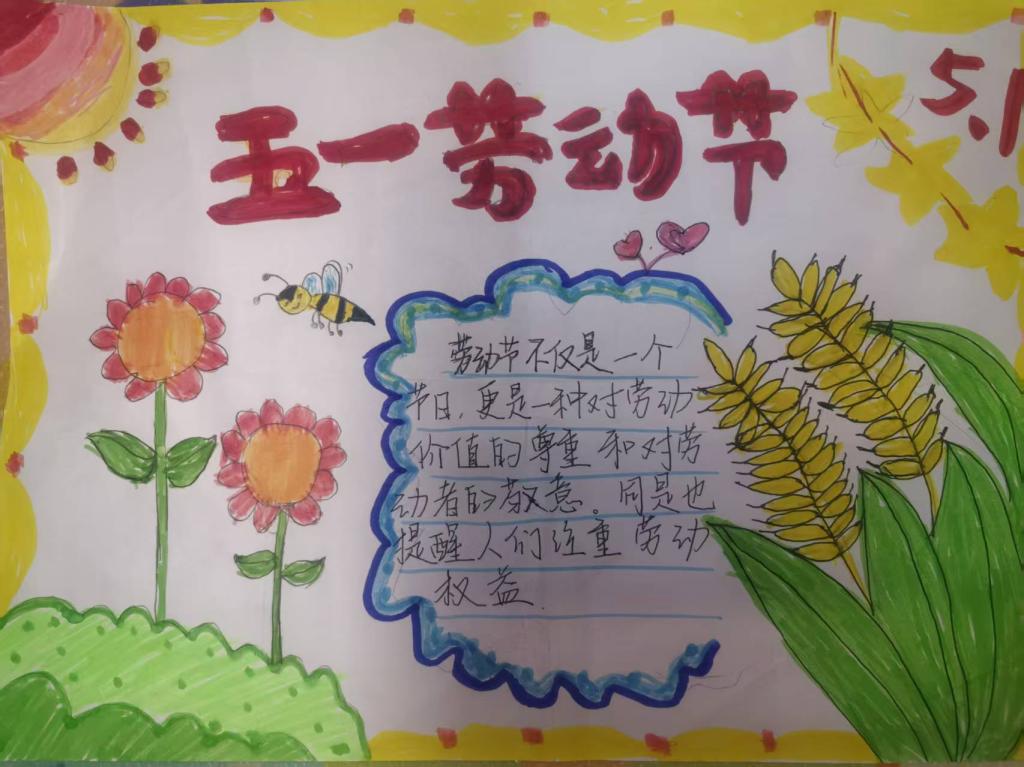 五一劳动节
5.1
劳动节不仅是一个
节日，更是一种对劳动
价值的尊重和对劳
动者的敬意。同是也
提醒人们注重劳动
权益.